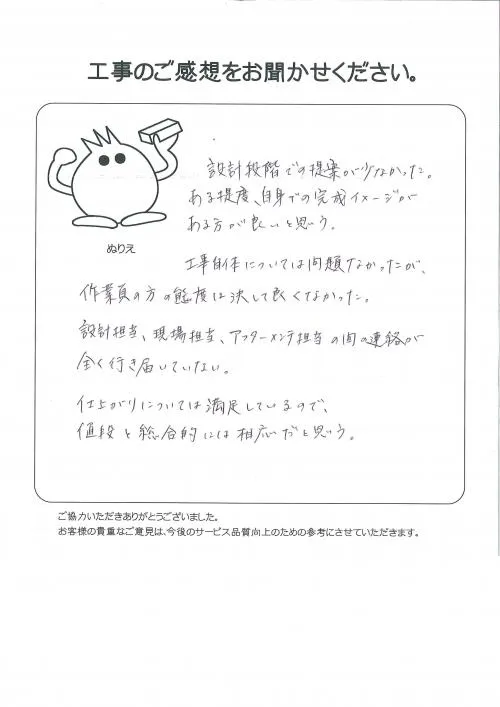 工事のご感想をお聞かせください。
設計段階での提案が少なかった。
ある程度、自身での完成イメージが
ある方が良いと思う。
ぬりえ
工事自体については問題なかったが、
作業員の方の態度は決して良くなかった。
設計担当、現場担当、アフターメンテ担当の間の連絡が
全く行き届いていない。
仕上がりについては満足しているので、
値段と総合的には相応だと思う。
ご協力いただきありがとうございました。
お客様の貴重なご意見は、今後のサービス品質向上のための参考にさせていただきます。